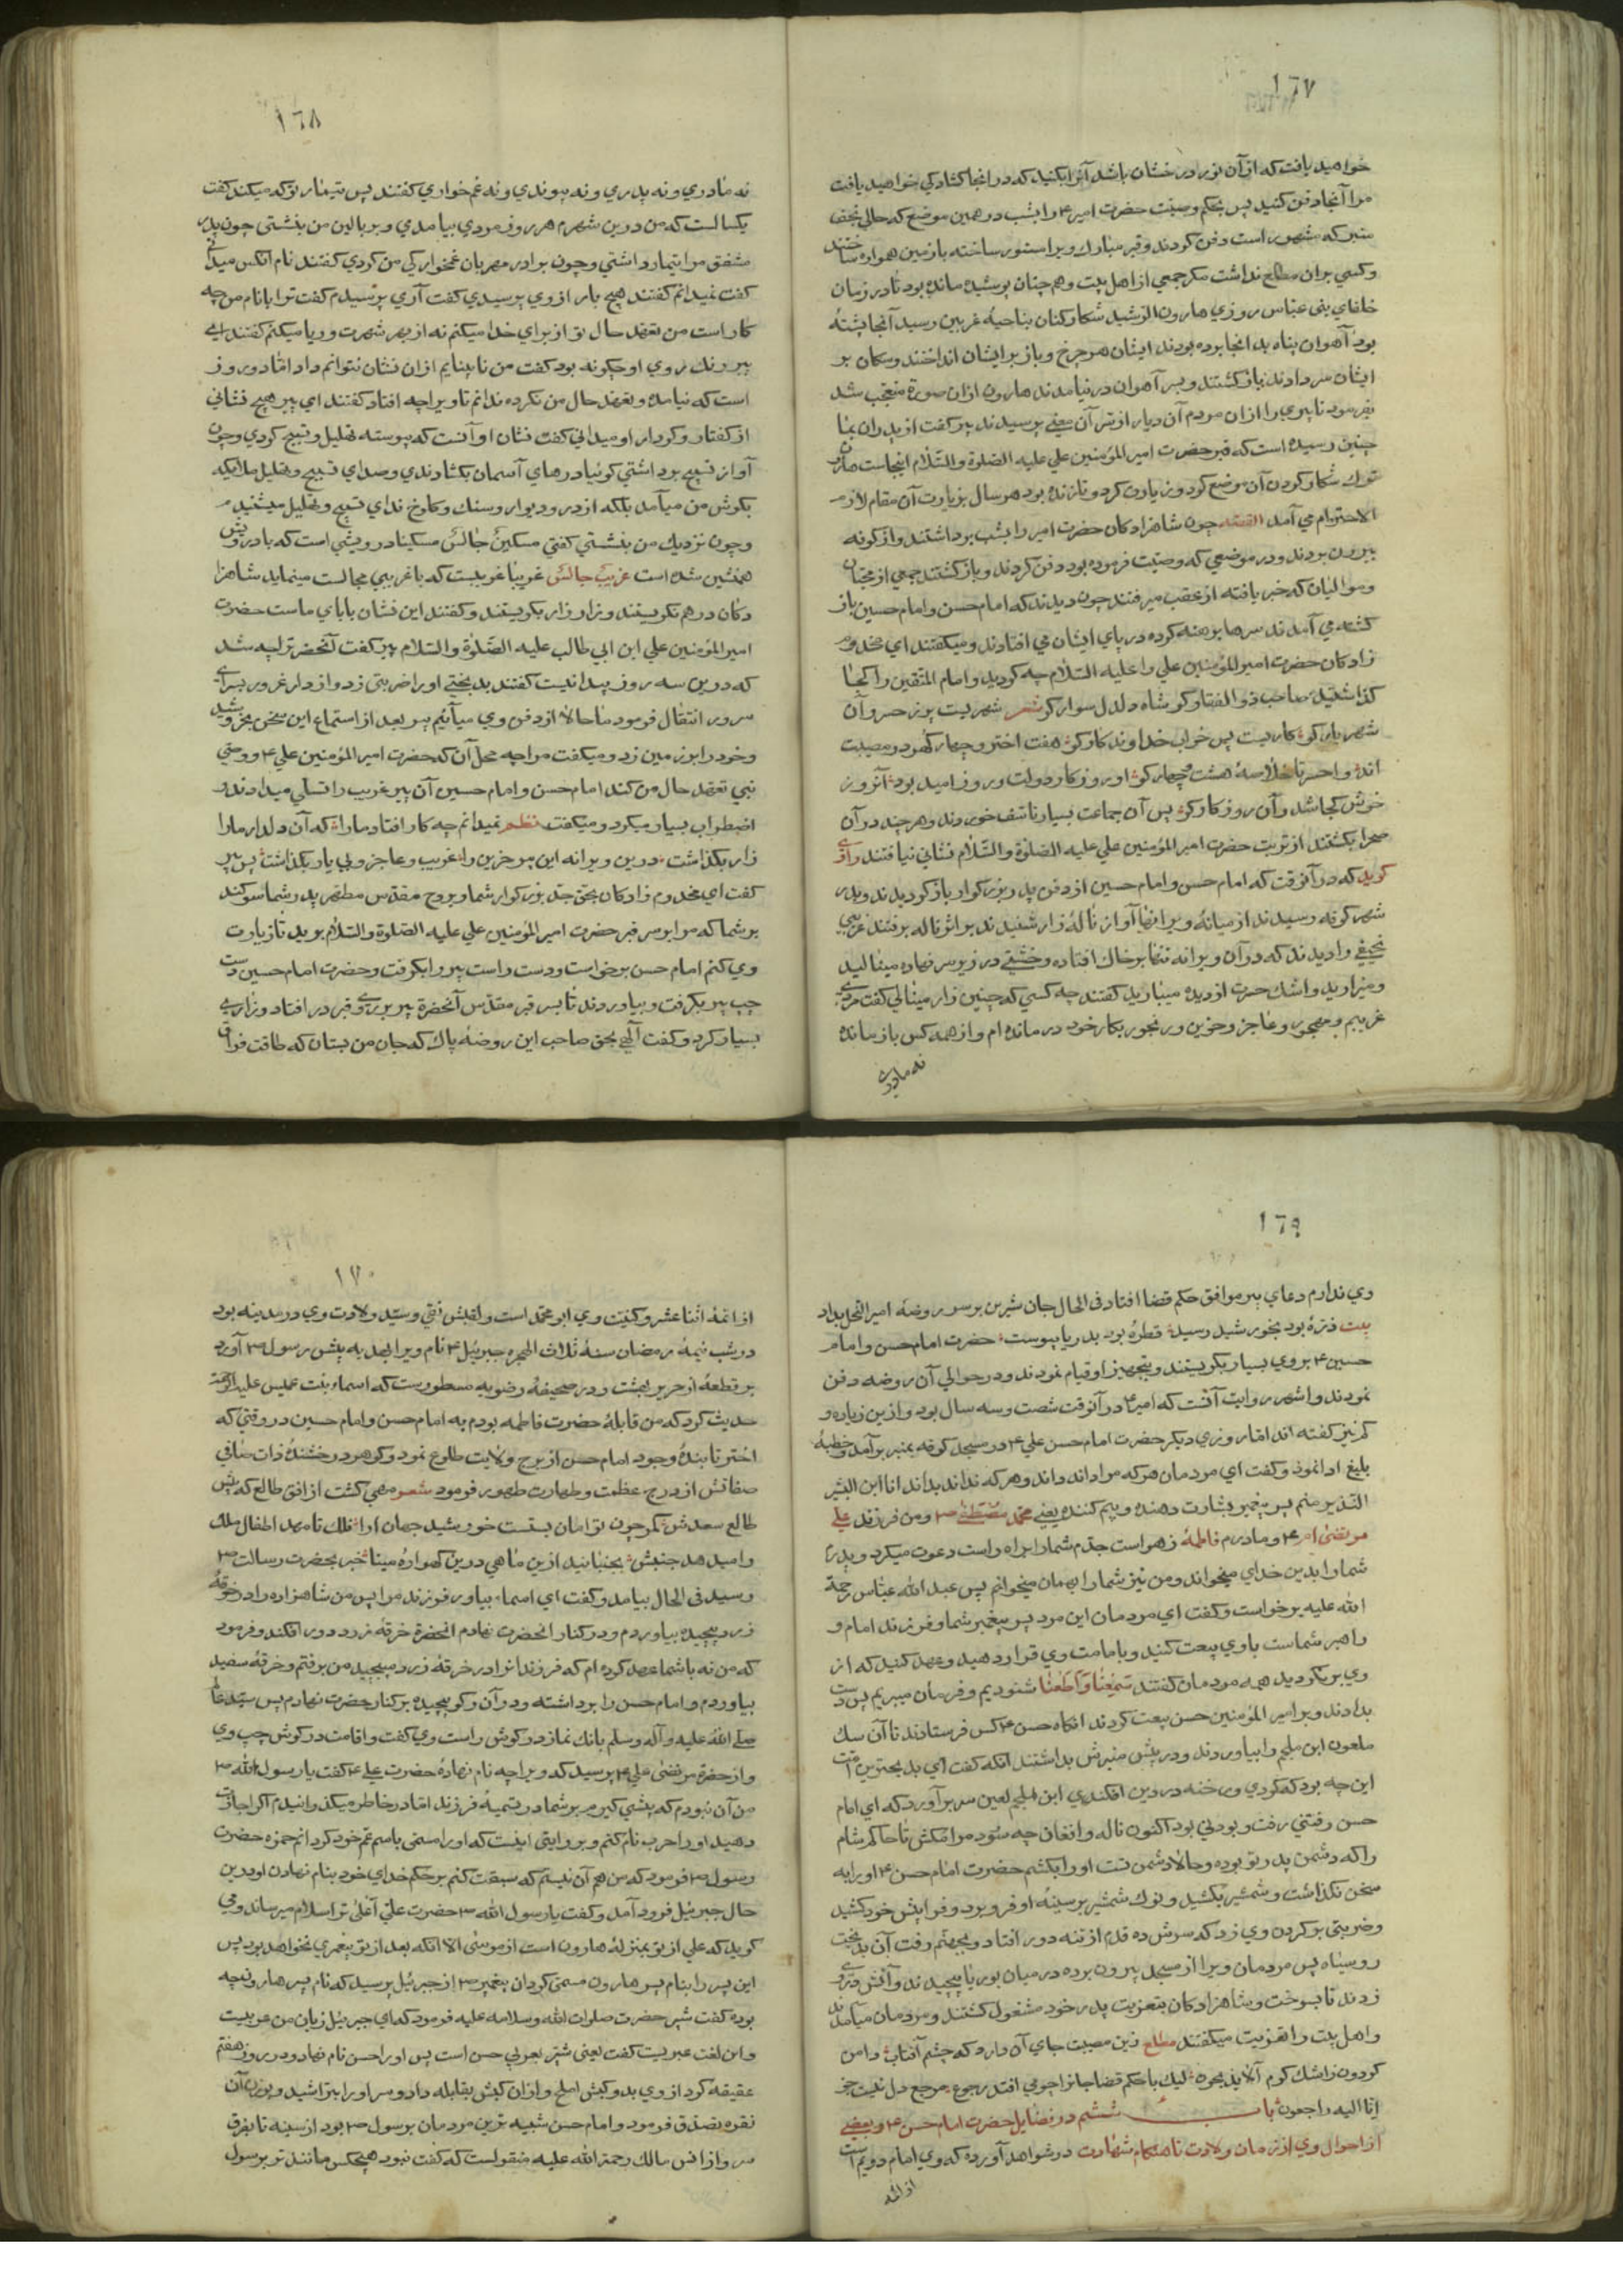 ١٦٧
خواهید یافت که از آن نور درخشان باشد آنرا بکنید که در انجا کشادکی خواهید یافت
مرا آنجا دفن کنید پس بحکم وصیت حضرت امیر ع را بشب در همین موضع که حالی بنجف
منبر که مشهور است دفن کردند و قبر مبارك ویرا استوار ساخته با زمین هموار ساختند
و کسی بران مطلع نداشت مکر جمعی از اهل بیت و هم چنان پوشیده مانده بود تا در زمان
خلفای بنی عباس روزی هارون الرشید شکار کنان بناحیهٔ غریین رسید آنجا پشتهٔ
بود آهوان پناه بدانجا برده بودند ایشان هر چرخ و باز بر ایشان انداختند و سکان بر
ایشان سر دادند باز کشتند و بسر آهوان در نیامدند هارون ازان صورة متعجب شد
بفرمود تا پیری را ازان مردم آن دیار از سّر آن معنی پرسیدند پیر کفت از پدران بما
چنین رسیده است که قبر حضرت امیر المؤمنین علی علیه الصلوة والسّلام اینجاست هارون
ترك شکار کردن آن موضع کرد و زیارت کرد و تا زنده بود هر سال بزیارت آن مقام لازم
الاحترام می آمد القصه چون شاهزادکان حضرت امیر را بشب برداشتند و از کوفه
بیرون بردند و در موضعی که وصیّت فرموده بود دفن کردند و باز کشتند جمعی از محبّان
و موالیان که خبر یافته از عقب میرفتند چون دیدند که امام حسن و امام حسین باز
کشته می آمدند سرها برهنه کرده در پای ایشان می افتادند و میکفتند ای مخدوم
زادکان حضرت امیر المؤمنین علی را علیه السّلام چه کردید و امام المتقین را کجا
کذاشتید صاحب ذو الفقار کو شاه دلدل سوار کو شعر شهریست پر ز حسر و آن
شهریار کو کاریست پس خراب خداوند کار کو هفت اختر و چهار کهر در مصیبت
اند وا حسرتا خلاصهٔ هشت و چهار کو او روز کار دولت و روز امید بود آنروز
خوش کجا شد و آن روزکار کو پس آن جماعت بسیار تاسّف خوردند و هر چند در آن
صحرا بکشتند از تربت حضرت امیر المؤمنین علی علیه الصلوة والسّلام نشانی نیافتند راوی
کوید که در آنوقت که امام حسن و امام حسین از دفن پدر بزرکوار باز کردیدند و بدر
شهر کوفه رسیدند از میانهٔ ویرانها آواز نالهٔ زار شنیدند بر اثر ناله برفتند غریبی
نحیفی را دیدند که در آن ویرانه تنها بر خاك افتاده و خشتی در زیر سر نهاده مینالید
و میزارید و اشك حسرت از دیده میبارید کفتند چه کسی که چنین زار مینالی کفت مردی
غریبم و مهجور و عاجز و حزین و رنجور بکار خود در مانده ام و از همه کس باز مانده
نه مادری
١٦٨
نه مادری و نه پدری و نه پیوندی و نه غم خواری کفتند پس تیمار تو که میکند کفت
یکسالست که من درین شهرم هر روز مردی بیامدی و بر بالین من بنشستی چون پدر
مشفق مرا تیمار داشتی و چون برادر مهربان غمخوارکی من کردی کفتند نام آنکس میدانی
کفت نمیدانم کفتند هیچ بار از وی پرسیدی کفت آری پرسیدم کفت ترا با نام من چه
کار است من تعهّد حال تو از برای خدا میکنم نه از بهر شهرت و ریا میکنم کفتند ای
پیر رنك روی او چکونه بود کفت من نابینایم ازان نشان نتوانم داد امّا دو روز
است که نیامده و تعهّد حال من نکرده ندانم تا ویرا چه افتاد کفتند ای پیر هیچ نشانی
از کفتار و کردار او میدانی کفت نشان او آنست که پیوسته تهلیل و تسبیح کردی و چون
آواز تسبیح برداشتی کوئیا درهای آسمان بکشادندی و صدای تسبیح و تهلیل ملایکه
بکوش من میآمد بلکه از در و دیوار و سنك و کلوخ ندای تسبیح و تهلیل میشنیدم
و چون نزدیك من بنشستی کفتی مسکینٌ جالسَ مسکینا درویشی است که با درویش
همنشین شده است غریبٌ جالسَ غریبا غریبست که با غریبی مجالست مینماید شاهزا
دکان در هم نکریستند و زار زار بکریستند و کفتند این نشان بابای ماست حضرت
امیر المؤمنین علی ابن ابی طالب علیه الصّلوة والسّلام پیر کفت آنحضرترا چه شد
که درین سه روز پیدا نیست کفتند بدبختی او را ضربتی زد و از دار غرور بسرای
سرور انتقال فرمود ما حالا از دفن وی میآئیم پیر بعد از استماع این سخن بخروشید
و خود را بر زمین زد و میکفت مرا چه محل آن که حضرت امیر المؤمنین علی ع و وصّی
نبی تعهّد حال من کند امام حسن و امام حسین آن پیر غریب را تسلّی میدادند و
اضطراب بسیار میکرد و میکفت نظم نمیدانم چه کار افتاد مارا که آن دلدار ما را
زار بکذاشت درین ویرانه این پیر حزین را غریب و عاجز و بی یار بکذاشت پس پیر
کفت ای مخدوم زادکان بحق جد بزرکوار شما و بروح مقدّس مطهّر پدر شما سوکند
بر شما که مرا بر سر قبر حضرت امیر المؤمنین علی علیه الصّلوة والسّلام برید تا زیارت
وی کنم امام حسن برخواست و دست راست پیر را بکرفت و حضرت امام حسین دست
چپ پیر بکرفت و بیاوردند تا بسر قبر مقدّس آنحضرة پیر بر روی قبر در افتاد و زاری
بسیار کرد و کفت الهی بحق صاحب این روضهٔ پاك که جان من بستان که طاقت فراق
١٦٩
وی ندارم دعای پیر موافق حکم قضا افتاد فی الحال جان شیرین بر سر روضهٔ امیر النحل بداد
بیت ذرّهٔ بود بخورشید رسید قطرهٔ بود بدریا پیوست حضرت امام حسن و امام
حسین ع بر وی بسیار بکریستند و بتجهیز او قیام نمودند و در حوالی آن روضه دفن
نمودند و اشهر روایت آنست که امیر ع در آنوقت شصت و سه سال بود و ازین زیاده و
کم نیز کفته اند امّا روزی دیکر حضرت امام حسن علی ع در مسجد کوفه بمنبر برآمد و خطبهٔ
بلیغ ادا نمود و کفت ای مردمان هر که مرا داند داند و هر که نداند بداند انا ابن البشیر
النّذیر منم پسر پیغمبر بشارت دهنده و بیم کننده یعنی محمّد مصطفی ص و من فرزند علی
مرتضی ام ع و مادرم فاطمهٔ زهراست جدّم شما را براه راست دعوت میکرد و پدرم
شما را بدین خدای میخواند و من نیز شما را بهمان میخوانم پس عبد الله عبّاس رحمة
الله علیه برخواست و کفت ای مردمان این مرد پسر پیغمبر شما و فرزند امام و
راهبر شماست با وی بیعت کنید و بامامت وی قرار دهید و عهد کنید که از
وی بر نکردید همه مردمان کفتند سَمِعْنَا وَاَطَعْنَا شنودیم و فرمان میبریم پس دست
بدادند و بر امیر المؤمنین حسن بیعت کردند انکاه حسن ع کس فرستادند تا آن سك
ملعون ابن ملجم را بیاوردند و در پیش منبرش بداشتند انکه کفت ای بدبخترین امّت
این چه بود که کردی و رخنه در دین افکندی ابن الملجم لعین سر برآورد که ای امام
حسن رفتنی رفت و بودنی بود اکنون ناله و افغان چه سُود مرا مکش تا حاکم شام
را که دشمن پدر تو بوده و حالا دشمن تست او را بکشم حضرت امام حسن ع او را به
سخن نکذاشت و شمشیر بکشید و نوك شمشیر بر سینهٔ او فرو برد و فرا پیش خود کشید
و ضربتی بر کردن وی زد که سرش ده قدم از تنه دور افتاد و بجهنّم رفت آن بدبخت
رو سیاه پس مردمان ویرا از مسجد بیرون برده در میان بوریا پیچیدند و آتش در وی
زدند تا بسوخت و شاهزادکان بتعزیت پدر خود مشغول کشتند و مردمان میآمدند
و اهل بیت را تعزیت میکفتند مطلع زین مصیبت جای آن دارد که چشم آفتاب دامن
کردون ز اشك کرم آلاید بخون لیك با حکم قضا چو افتد رجوع مرجع دل نیست جز
اِنّا الیه راجعون باب ششم در فضایل حضرت امام حسن ع و بعضی
از احوال وی از زمان ولادت تا هنکام شهادت در شواهد آورده که وی امام دویم است
از ائمه
١٧٠
از ائمهٔ اثنا عشر و کنیت وی ابو محمّد است و لقبش تقی و سیّد ولادت وی در مدینه بود
در شب نیمهٔ رمضان سنهٔ ثلاث الهجره جبرئیل ع نام ویرا بهدیه پیش رسول ص آورد
بر قطعهٔ از حریر بهشت و در صحیفهٔ رضویه مسطورست که اسماء بنت عمیس علیه الرحمة
حدیث کرد که من قابلهٔ حضرت فاطمه بودم به امام حسن و امام حسین در وقتی که
اختر تابندهٔ وجود امام حسن از برج ولایت طلوع نمود و کوهر درخشندهٔ ذات صافی
صفاتش از درج عظمت و طهارت ظهور فرمود شعر مهی کشت از افق طالع که پیش
طالع سعدش کمر چون توامان بستست خورشید جهان آرا فلك تا مهد اطفال ملك
را میدهد جنبش بجنبانید ازین ماهی درین کهوارهٔ مینا خبر بحضرت رسالت ص
رسید فی الحال بیامد و کفت ای اسماء بیاور فرزند مرا پس من شاهزاده را در خرقهٔ
زرد پیچیده بیاوردم و در کنار انحضرت نهادم انحضرة خرقهٔ زرد دور افکند و فرمود
که من نه با شما عهد کرده ام که فرزندانرا در خرقهٔ زرد مپیچید من برفتم و خرقهٔ سفید
بیاوردم و امام حسن را برداشته و در آن وکر پیچیده بر کنار حضرت نهادم پس سیّد عالم
صلی اللهُ علیه و آله و سلم بانك نماز در کوش راست وی کفت و اقامت در کوش چپ وی
و از حضرة مرتضی علی ع پرسید که ویرا چه نام نهادهٔ حضرت علی ع کفت یا رسول الله ص
من آن نبودم که پیشی کیرم بر شما در تسمیهٔ فرزند امّا در خاطر میکذرانیدم اکر اجازت
دهید او را حرب نام کنم و بروایتی اینست که او را مسمّی باسم عم خود کردانم حمزه حضرت
رسول ص فرمود که من هم آن نیستم که سبقت کنم بر حکم خدای خود بنام نهادن او درین
حال جبرئیل فرود آمد و کفت یا رسول الله ص حضرت علیّ اَعْلیٰ ترا سلام میرساند و می
کوید که علی از تو بمنزلهٔ هارون است از موسَی الا انکه بعد از تو پیغمبری نخواهد بود پس
این پسر را بنام پسر هارون مسمّی کردان پیغمبر ص از جبرئیل پرسید که نام پسر هارون چه
بوده کفت شبر حضرت صلوات الله و سلامه علیه فرمود که ای جبرئیل زبان من عربیست
و این لغت عبریست کفت یعنی شبّر بعربی حسن است پس او را حسن نام نهاد و در روز هفتم
عقیقه کرد از وی بدو کبش املح و ازان کبش بقابله داد و سر او را بتراشید و بوزن آن
نقره بصدّق فرمود و امام حسن شبیه ترین مردمان برسول ص بود از سینه تا بفرق
سر و از انس مالك رحمة الله علیه منقولست که کفت نبود هیچکس مانندتر برسول